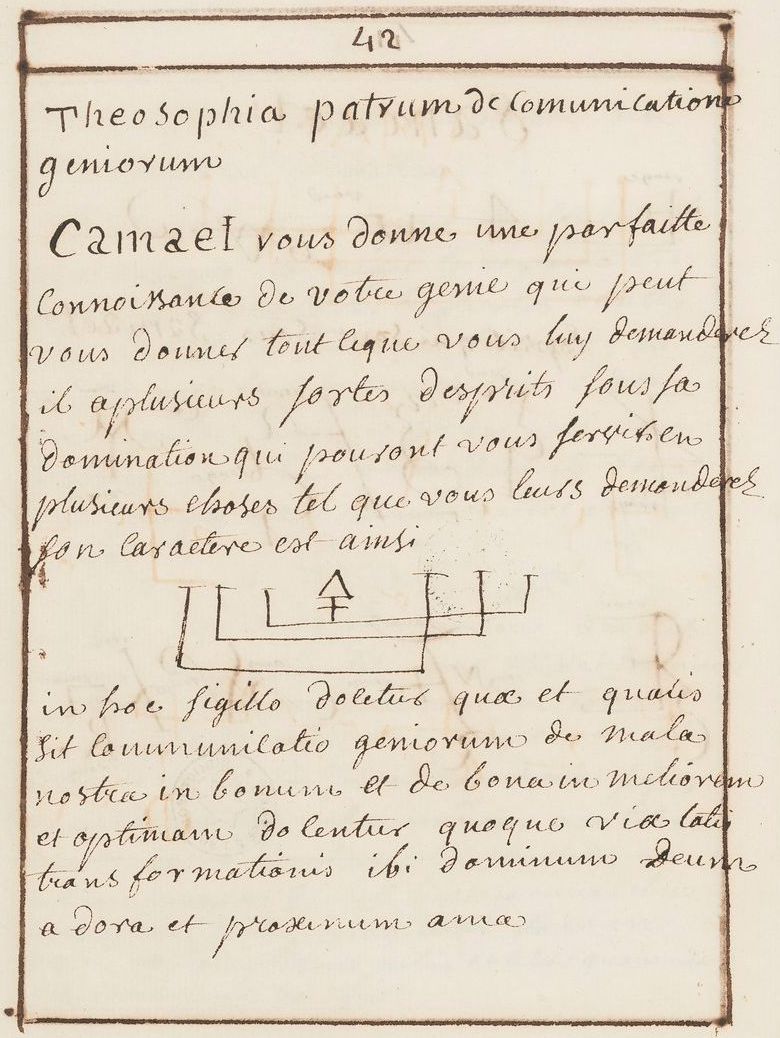 42
Theosophia patrum de comunicatione
geniorum
Camael vous donne une parfaitte
connoissance de votre genie qui peut
vous donner tout leque vous luy demanderez
il aplusieurs sortes desprits sous sa
domination qui pouront vous servir en
plusieurs choses tel que vous leurs demanderez
son caractere est ainsi
in hoc sigillo docetur quæ et qualis
sit communicatio geniorum de mala
nostra in bonum et de bona in meliorem
et optimam docentur quoque viæ
transformationis ibi dominum Deum
adora et proximum ama